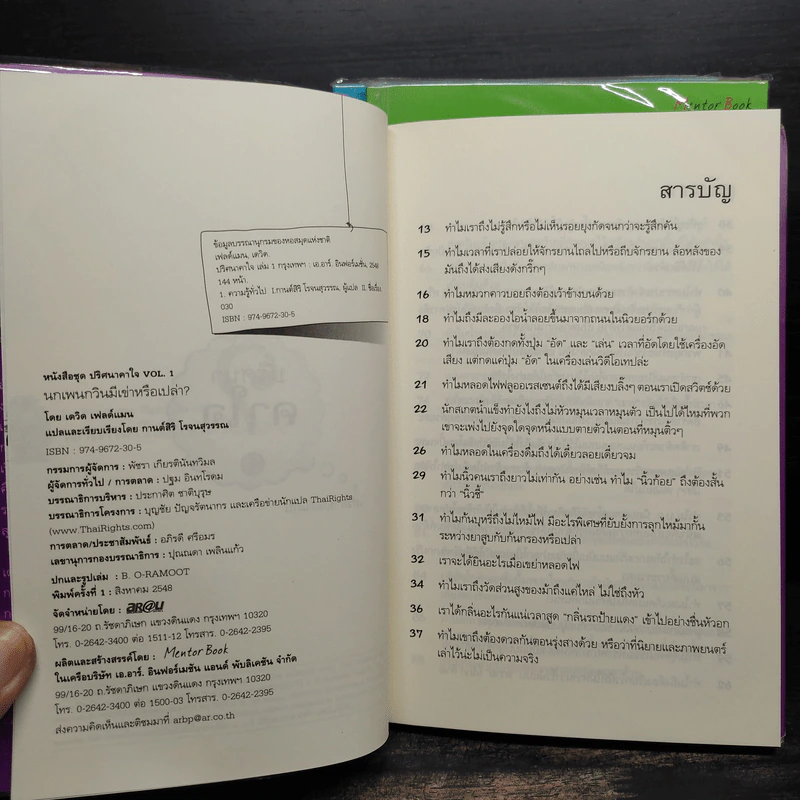 Mentor Book
ข้อมูลบรรณานุกรมของหอสมุดแห่งชาติ
เฟลด์แมน, เดวิด.
ปริศนาคาใจ เล่ม 1 กรุงเทพฯ : เอ.อาร์. อินฟอร์เมชั่น, 2548
144 หน้า.
1. ความรู้ทั่วไป I.กานต์สิริ โรจนสุวรรณ, ผู้แปล II. ชื่อเรื่อง
030
ISBN : 974-9672-30-5
หนังสือชุด ปริศนาคาใจ VOL. 1
นกเพนกวินมีเข่าหรือเปล่า?
โดย เดวิด เฟลด์แมน
แปลและเรียบเรียงโดย กานต์สิริ โรจนสุวรรณ
ISBN : 974-9672-30-5
กรรมการผู้จัดการ : พัชรา เกียรตินันทวิมล
ผู้จัดการทั่วไป / การตลาด : ปฐม อินทโรดม
บรรณาธิการบริหาร : ประกาศิต ชาติบุรุษ
บรรณาธิการโครงการ : บุญชัย ปัญจรัตนากร และเครือข่ายนักแปล ThaiRights
(www.ThaiRights.com)
การตลาด/ประชาสัมพันธ์ : อภิรดี ศรีอมร
เลขานุการกองบรรณาธิการ : ปุณณดา เพลินแก้ว
ปกและรูปเล่ม : B. O-RAMOOT
พิมพ์ครั้งที่ 1 : สิงหาคม 2548
จัดจำหน่ายโดย : ar@u
99/16-20 ถ.รัชดาภิเษก แขวงดินแดง กรุงเทพฯ 10320
โทร. 0-2642-3400 ต่อ 1511-12 โทรสาร. 0-2642-2395
ผลิตและสร้างสรรค์โดย : Mentor Book
ในเครือบริษัท เอ.อาร์. อินฟอร์เมชัน แอนด์ พับลิเคชัน จำกัด
99/16-20 ถ.รัชดาภิเษก แขวงดินแดง กรุงเทพฯ 10320
โทร. 0-2642-3400 ต่อ 1500-03 โทรสาร. 0-2642-2395
ส่งความคิดเห็นและติชมมาที่ arbp@ar.co.th
สารบัญ
13 ทำไมเราถึงไม่รู้สึกหรือไม่เห็นรอยยุงกัดจนกว่าจะรู้สึกคัน
15 ทำไมเวลาที่เราปล่อยให้จักรยานไถลไปหรือถีบจักรยาน ล้อหลังของ
มันถึงได้ส่งเสียงดังกริ๊กๆ
16 ทำไมหมวกคาวบอยถึงต้องเว้าข้างบนด้วย
18 ทำไมถึงมีละอองไอน้ำลอยขึ้นมาจากถนนในนิวยอร์กด้วย
20 ทำไมเราถึงต้องกดทั้งปุ่ม "อัด" และ "เล่น" เวลาที่อัดโดยใช้เครื่องอัด
เสียง แต่กดแค่ปุ่ม "อัด" ในเครื่องเล่นวิดีโอเทปล่ะ
21 ทำไมหลอดไฟฟลูออเรสเซนต์ถึงได้มีเสียงปลิ๊งๆ ตอนเราเปิดสวิตช์ด้วย
22 นักสเกตน้ำแข็งทำยังไงถึงไม่หัวหมุนเวลาหมุนตัว เป็นไปได้ไหมที่พวก
เขาจะเพ่งไปยังจุดใดจุดหนึ่งแบบตายตัวในตอนที่หมุนติ้วๆ
26 ทำไมหลอดในเครื่องดื่มถึงได้เดี๋ยวลอยเดี๋ยวจม
29 ทำไมนิ้วคนเราถึงยาวไม่เท่ากัน อย่างเช่น ทำไม "นิ้วก้อย" ถึงต้องสั้น
กว่า "นิ้วชี้"
31 ทำไมก้นบุหรี่ถึงไม่ไหม้ไฟ มีอะไรพิเศษที่ยับยั้งการลุกไหม้มากั้น
ระหว่างยาสูบกับก้นกรองหรือเปล่า
32 เราจะได้ยินอะไรเมื่อเขย่าหลอดไฟ
34 ทำไมเราถึงวัดส่วนสูงของม้าถึงแค่ไหล่ ไม่ใช่ถึงหัว
36 เราได้กลิ่นอะไรกันแน่เวลาสูด "กลิ่นรถป้ายแดง" เข้าไปอย่างชื่นหัวอก
37 ทำไมเขาถึงต้องดวลกันตอนรุ่งสางด้วย หรือว่าที่นิยายและภาพยนตร์
เล่าไว้น่ะไม่เป็นความจริง